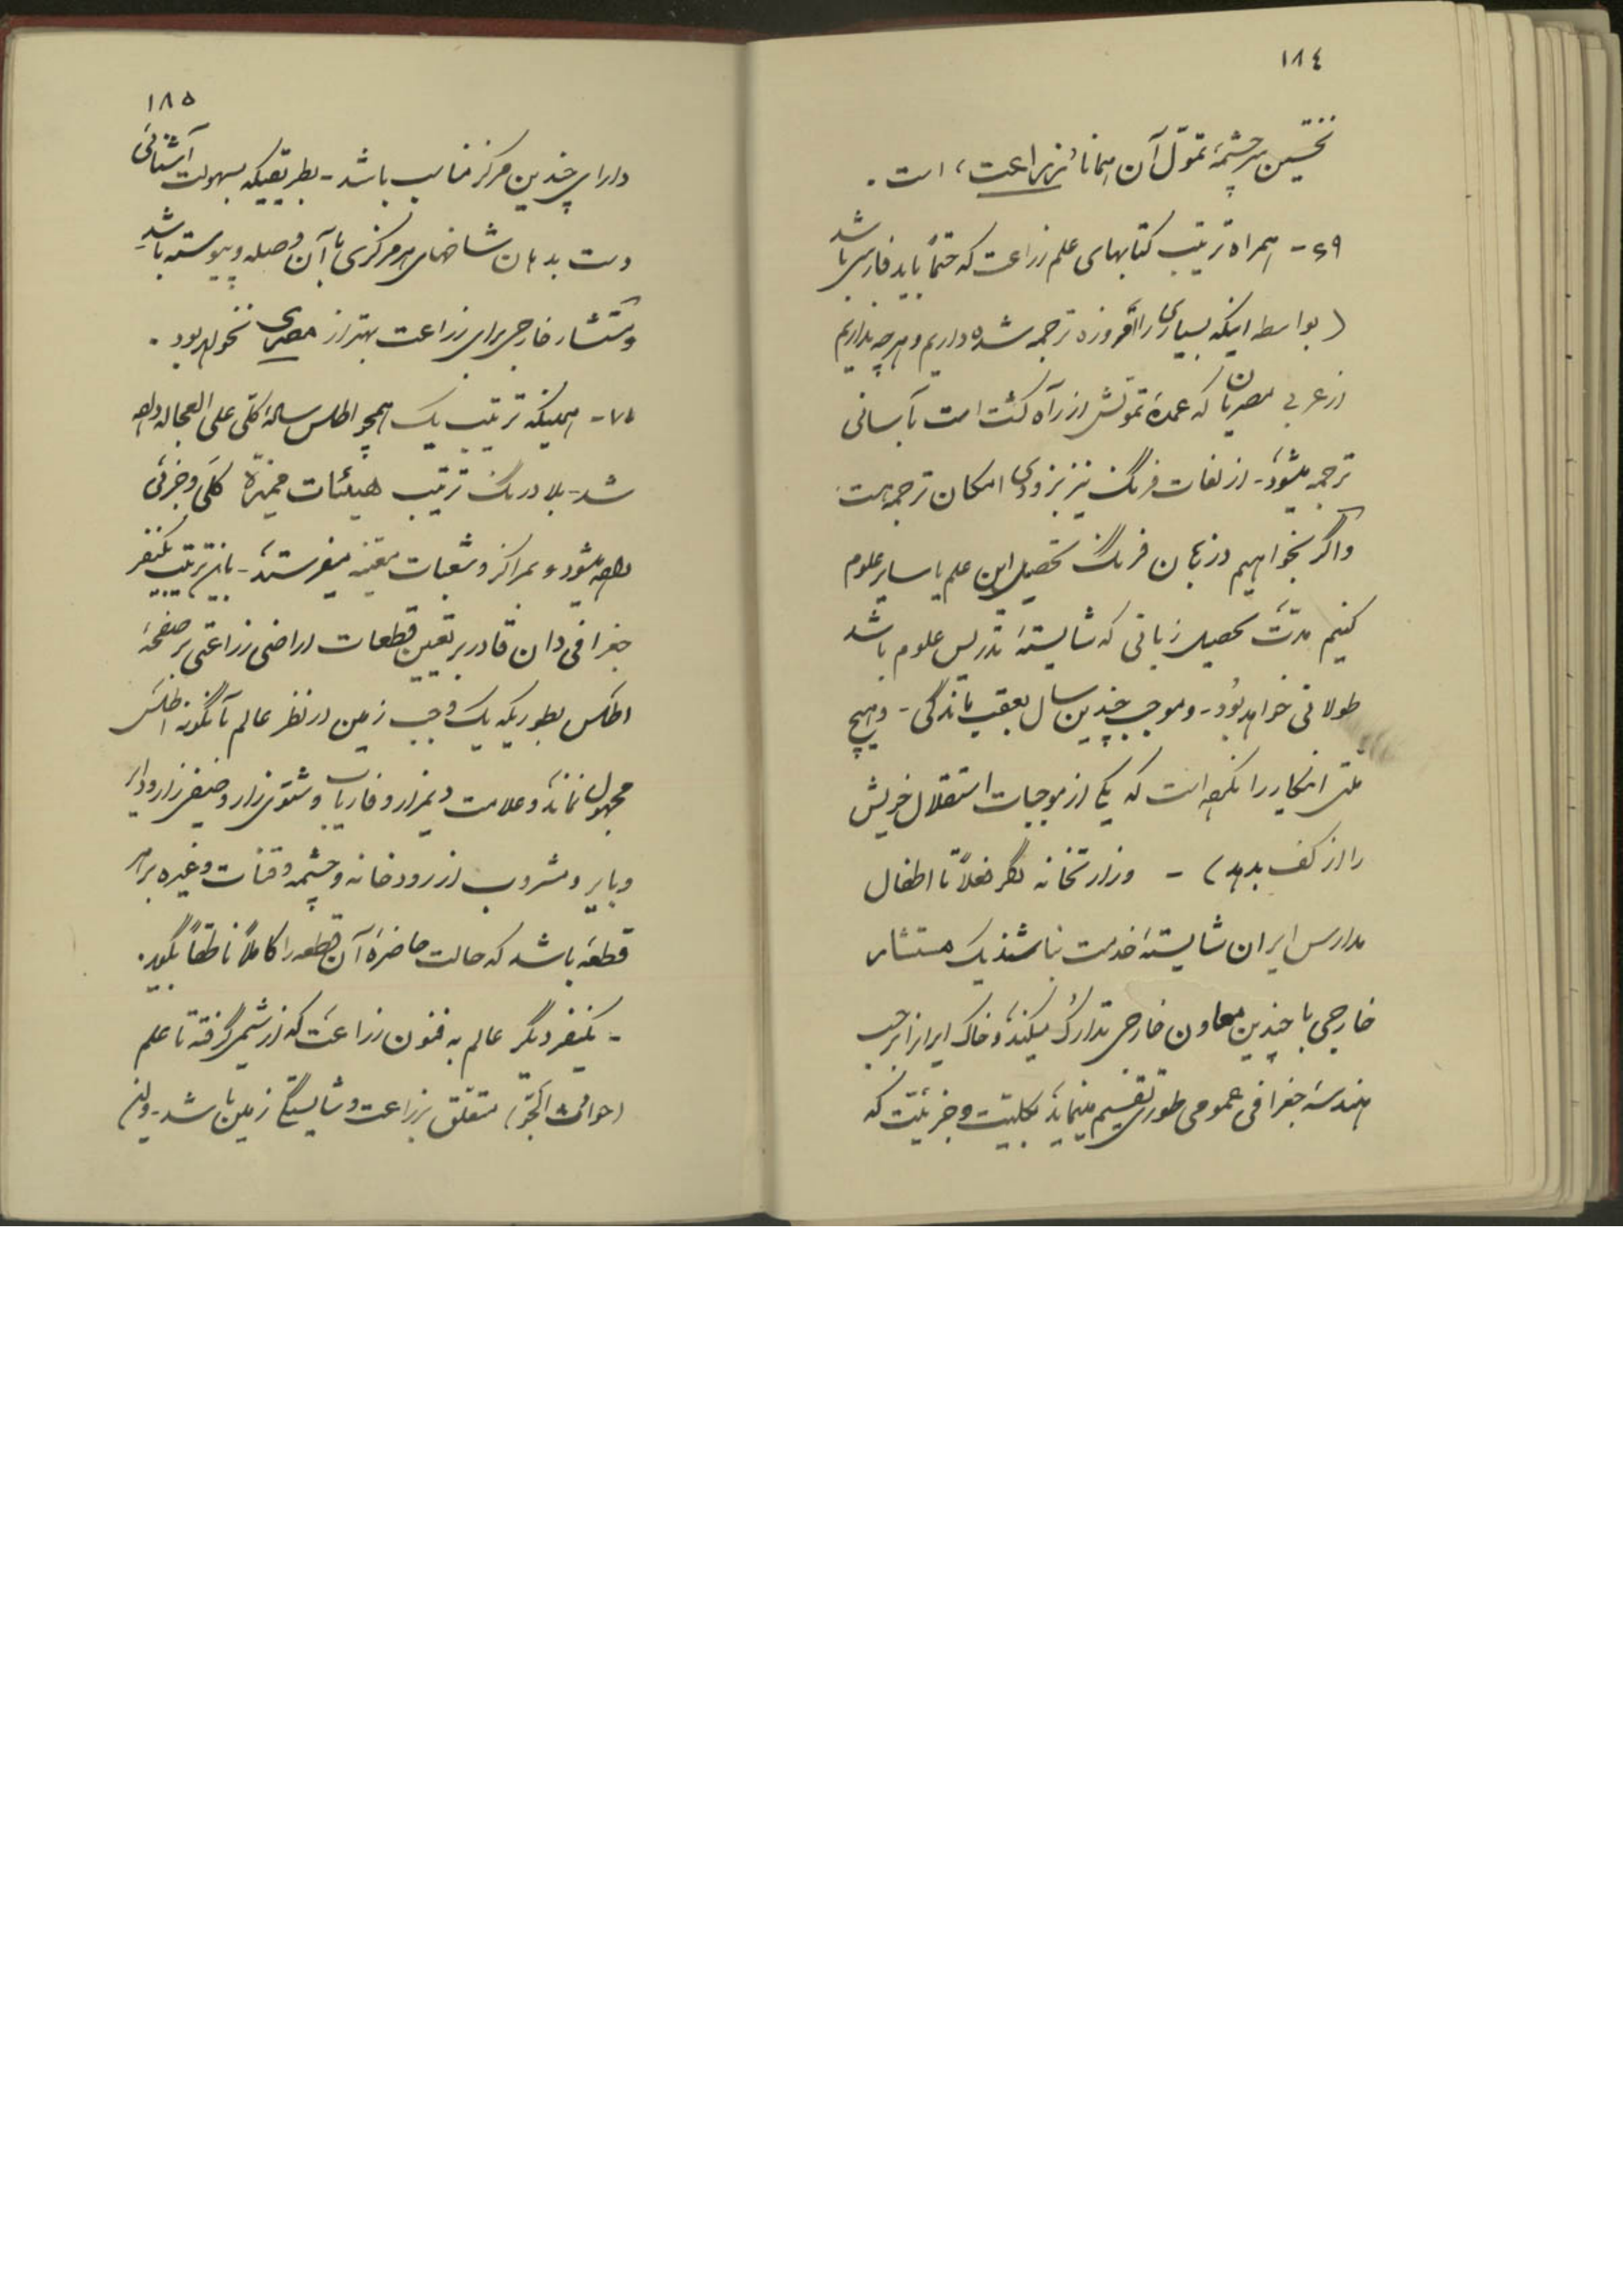 ١٨٤
نخستین سرچشمهٔ تموّل آن همانا «زراعت» است .
٦٩ - همراه ترتیب کتابهای علم زراعت که حتماً باید فارسی باشد
( بواسطه اینکه بسیاری را امروزه ترجمه شده داریم و هرچه نداریم
از عربی مصریان که عمدهٔ تموّلش از راه کشت است بآسانی
ترجمه میشود - از لغات فرنگ نیز بزودی امکان ترجمه هست
و اگر بخواهیم در زبان فرنگ تحصیل این علم یا سایر علوم
کنیم مدّت تحصیل زبانی که شایستهٔ تدریس علوم باشد
طولانی خواهد بود - و موجب چندین سال بعقب ماندگی - و هیچ
ملتی انکار را نکرده است که یکی از موجبات استقلال خویش
را از کف بدهد ) - وزارتخانه اگر فعلاً تا اطفال
مدارس ایران شایستهٔ خدمت نباشند یک مستشار
خارجی با چندین معاون خارجی تدارک میکند و خاک ایران را بر حسب
هندسهٔ جغرافی عمومی طوری تقسیم مینماید بکلیت و جزئیت که
١٨٥
دارای چندین مرکز مناسب باشد - بطریقیکه بسهولت آشنائی
دست بدهد و آن شاخهای هر مرکزی با آن وصله و پیوسته باشد -
و مستشار خارجی برای زراعت بهتر از مصری نخواهد بود .
٧٠ - همینکه ترتیب یک همچو اطلس سالهٔ کلی علی العجاله داده
شد - بلا درنگ ترتیب هیئات ممیزهٔ کلی و جزئی
داده میشود و بمراکز و شعبات معیّنه میفرستند - باین ترتیب یکنفر
جغرافی دان قادر بر تعیین قطعات اراضی زراعتی بر صفحهٔ
اطلس بطوریکه یک وجب زمین در نظر عالم بآنگونه اطلس
مجهول نماند و علامت دیمزار و فاریاب و شتوی زار و صیفی زار و دایر
و بایر و مشروب از رودخانه و چشمه و قنات و غیره بر هر
قطعه باشد که حالت حاضرهٔ آن قطعه را کاملاً ناطقاً بگوید .
- یکنفر دیگر عالم به فنون زراعت که از شیمی گرفته تا علم
(حوادث الجوّ) متعلّق بزراعت و شایستگی زمین باشد -